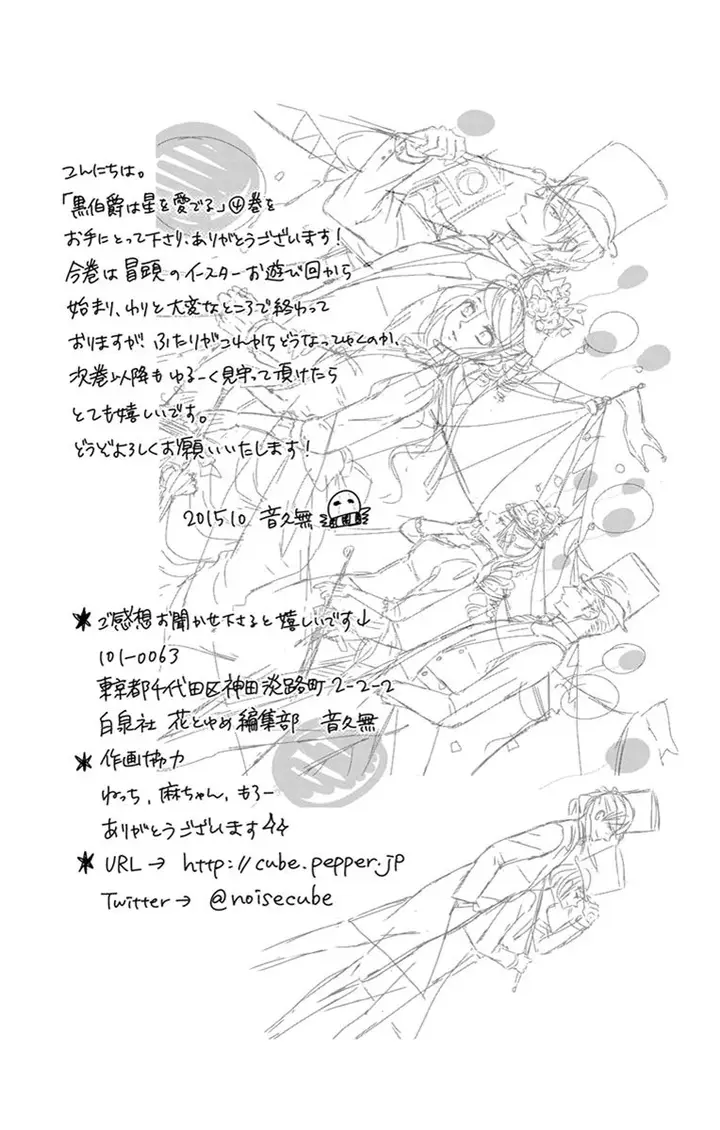 こんにちは。
「黒伯爵は星を愛でる」④巻を
お手にとって下さり、ありがとうございます!
今巻は冒頭のイースターお遊び回から
始まり、わりと大変なところで終わって
おりますが、ふたりがこれからどうなってゆくのか、
次巻以降もゆるーく見守って頂けたら
とても嬉しいです。
どうぞよろしくお願いいたします!
2015.10 音久無
★ ご感想お聞かせ下さると嬉しいです↓
101-0063
東京都千代田区神田淡路町2-2-2
白泉社 花とゆめ編集部 音久無
★ 作画協力
ねっち、麻ちゃん、もろー
ありがとうございます
★ URL→ http://cube.pepper.jp
Twitter→ @noisecube